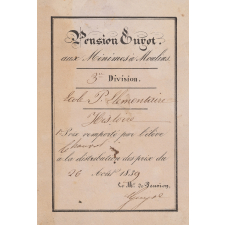 Pension Guyot.
aux Minimes à Moulins
3e Division.
P. Élémentaire
Histoire
Prix remporté par l'élève
à la distribution des prix du
26 Août 1839
Le Me de Pension,